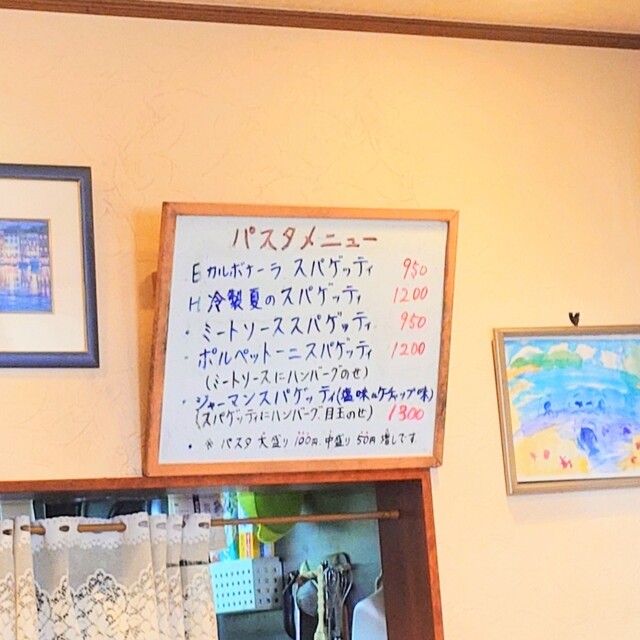 パスタメニュー
E カルボナーラ スパゲッティ 950
H 冷製夏のスパゲッティ 1200
・ミートソーススパゲッティ 950
・ポルペットーニスパゲッティ 1200
(ミートソースにハンバーグのせ)
・ジャーマンスパゲッティ(塩味orケチャップ味)
(スパゲッティにハンバーグ.目玉のせ) 1300
・※ パスタ 大盛り 100円. 中盛り 50円 増しです